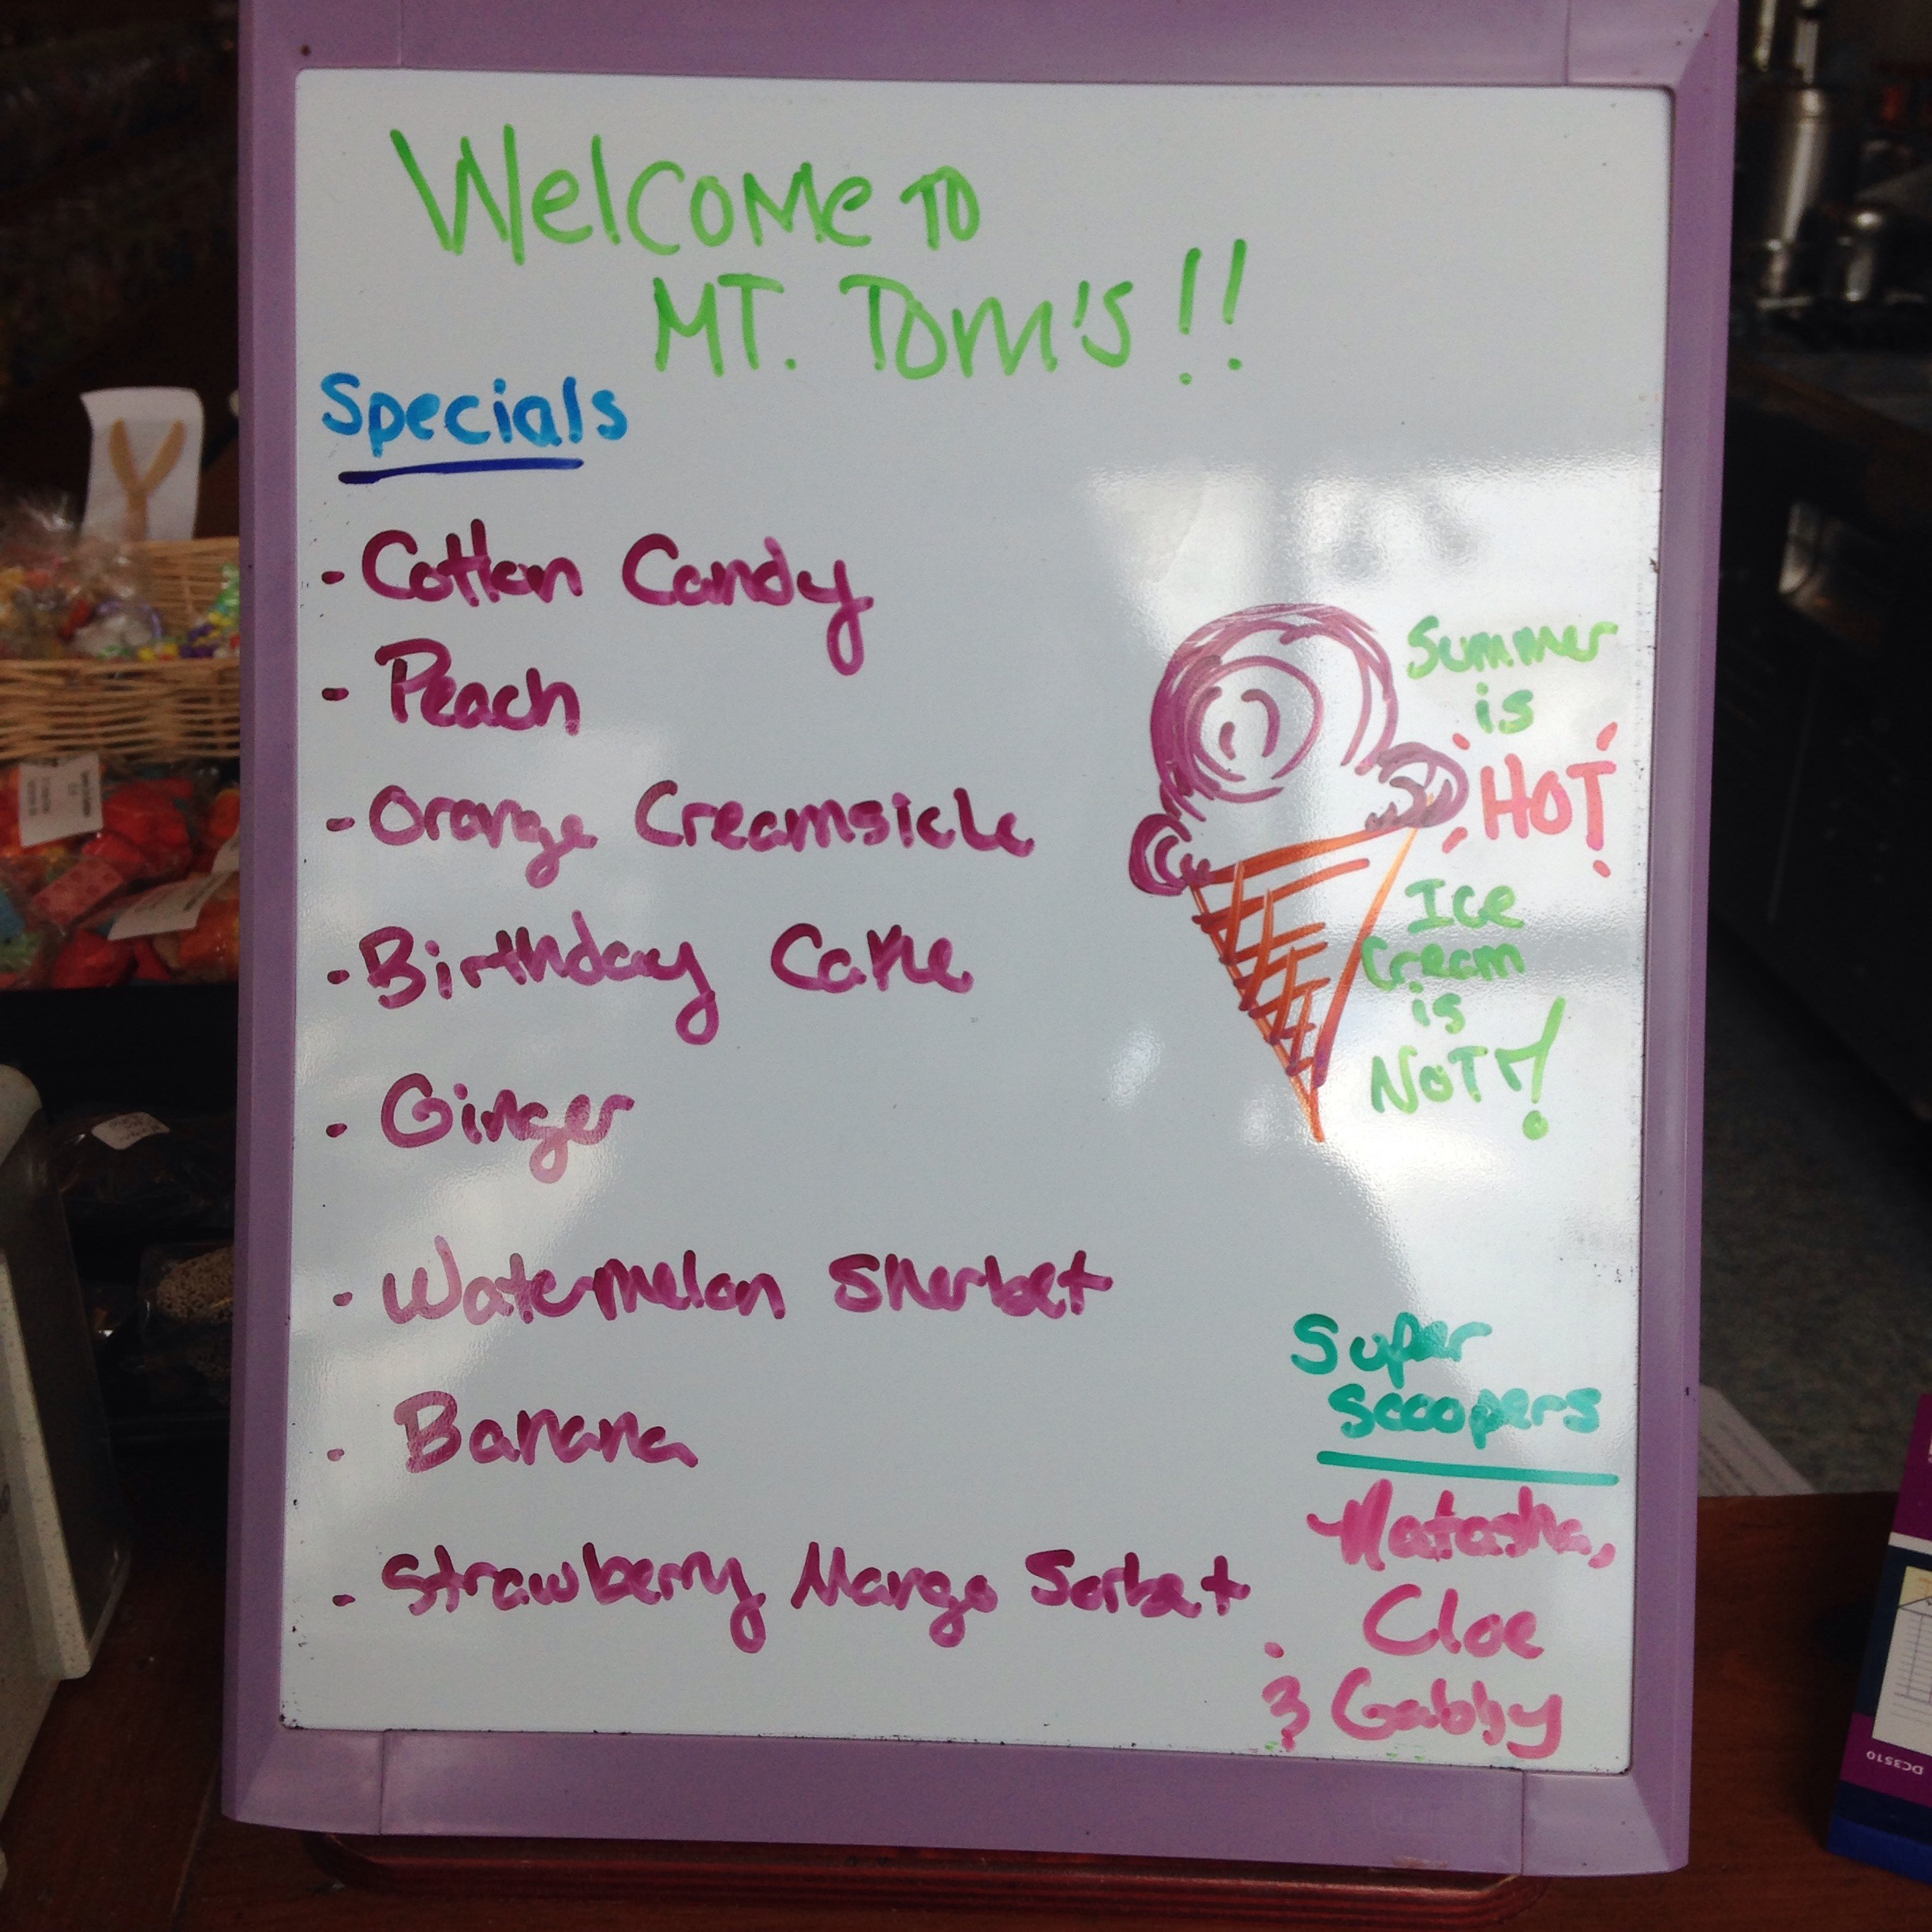 Welcome TO
MT. Tom's!!
Specials
- Cotton Candy
- Peach
- Orange Creamsicle
- Birthday Cake
- Ginger
- Watermelon Sherbet
- Banana
- Strawberry Mango Sorbet
Summer
is
HOT
Ice
Cream
is
NOT!
Super
Scoopers
Natasha,
Cloe
& Gabby
DC3510